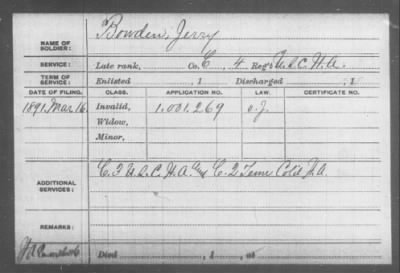 NAME OF SOLDIER: Bowden, Jerry
SERVICE: Late rank, Co. C, 4 Reg't U.S.C.H.A.
TERM OF SERVICE: Enlisted , 1 Discharged , 1
DATE OF FILING. CLASS. APPLICATION NO. LAW. CERTIFICATE NO.
1891 Mar. 16 Invalid, 1.001.269
Widow,
Minor,
ADDITIONAL SERVICES: C. 3 U.S.C.H.A. C. 2 Tenn Cold H.A.
REMARKS:
Died , 1 , at